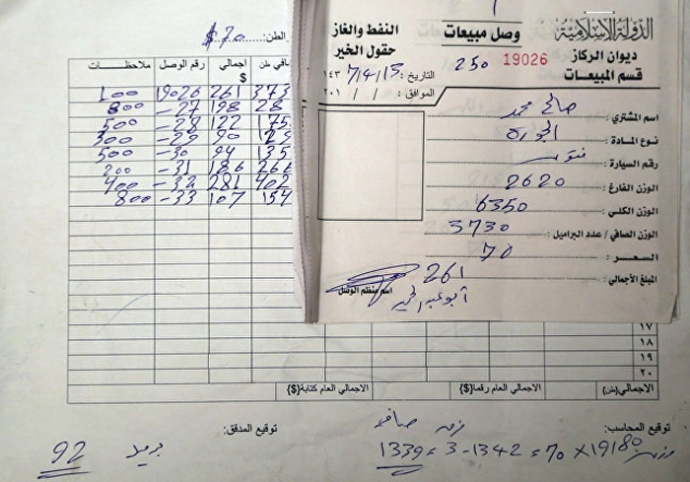 الدولة الإسلامية
ديوان الركاز
قسم المبيعات
وصل مبيعات
250 19026
النفط والغاز
حقول الخير
التاريخ: 15/4/7 ١٤٣
الموافق: / / ٢٠١
اسم المشتري: صالح محمد
نوع المادة:
رقم السيارة:
الوزن الفارغ: 2620
الوزن الكلي: 6350
الوزن الصافي / عدد البراميل: 3730
السعر: 70
المبلغ الأجمالي: 261
اسم منظم الوصل
الطن: $70
صافي طن اجمالي $ رقم الوصل ملاحظات
373 261 19026 100
28 198 27 800
175 122 28 500
129 90 29 300
135 94 30 500
266 186 31 200
402 281 32 400
154 107 33 800
١٧
١٨
١٩
٢٠
الاجمالي {طن} الاجمالي العام رقما {$} الاجمالي العام كتابة {$}
توقيع المحاسب: توقيع المدقق:
19180 × 70 = 1342 - 3 = 1339
92